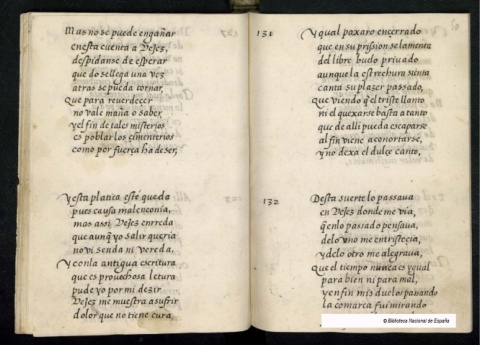 Mas no se puede engañar
en esta cuenta a Veles,
despidanse de esperar
que do se llega una vez
atras se pueda tornar,
Que para reverdecer
no vale maña o saber,
y el fin de tales misterios
es poblar los çimenterios
como por fuerça ha de ser,
Y esta platica esté queda
pues causa malenconia,
mas assi Veles enrreda
que aunq̃ yo salir queria
no vi senda ni vereda,
Y con la antigua escritura
que es provechosa letura
pude yo por mi dezir
Veles me muestra a sufrir
dolor que no tiene cura
131
Y qual paxaro ençerrado
que en su prission se lamenta
del libre buelo privado
aunque la estrechura sienta
canta su plazer passado,
Que viendo q̃ el triste llanto
ni el quexarse basta a tanto
que de alli pueda escaparse
al fin viene a conortarse,
y no dexa el dulçe canto,
132
Desta suerte lo passava
en Veles donde me via,
q̃ en lo passado pensava,
de lo uno me entristecia,
y de lo otro me alegrava,
Que el tiempo nunca es ygual
para bien ni para mal,
y en fin mis duelos passando
la comarca fui mirando
© Biblioteca Nacional de España